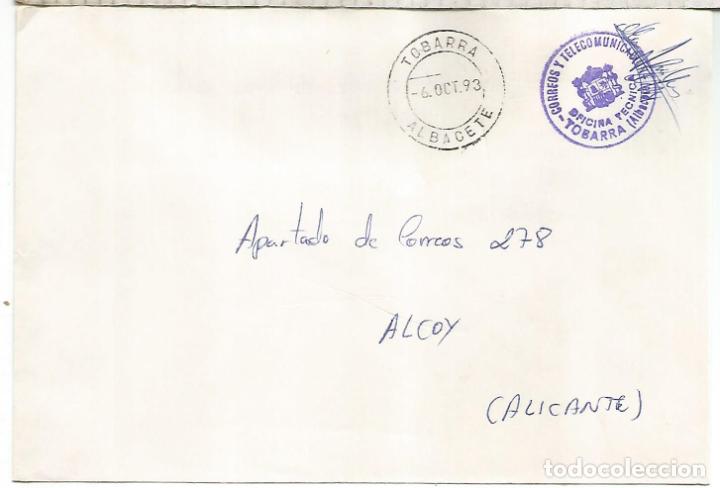 TOBARRA
-6.OCT.93
ALBACETE
CORREOS Y TELECOMUNICACIONES
OFICINA TECNICA
-TOBARRA (Albacete)-
Apartado de Correos 278
ALCOY
(ALICANTE)
todocoleccion.net